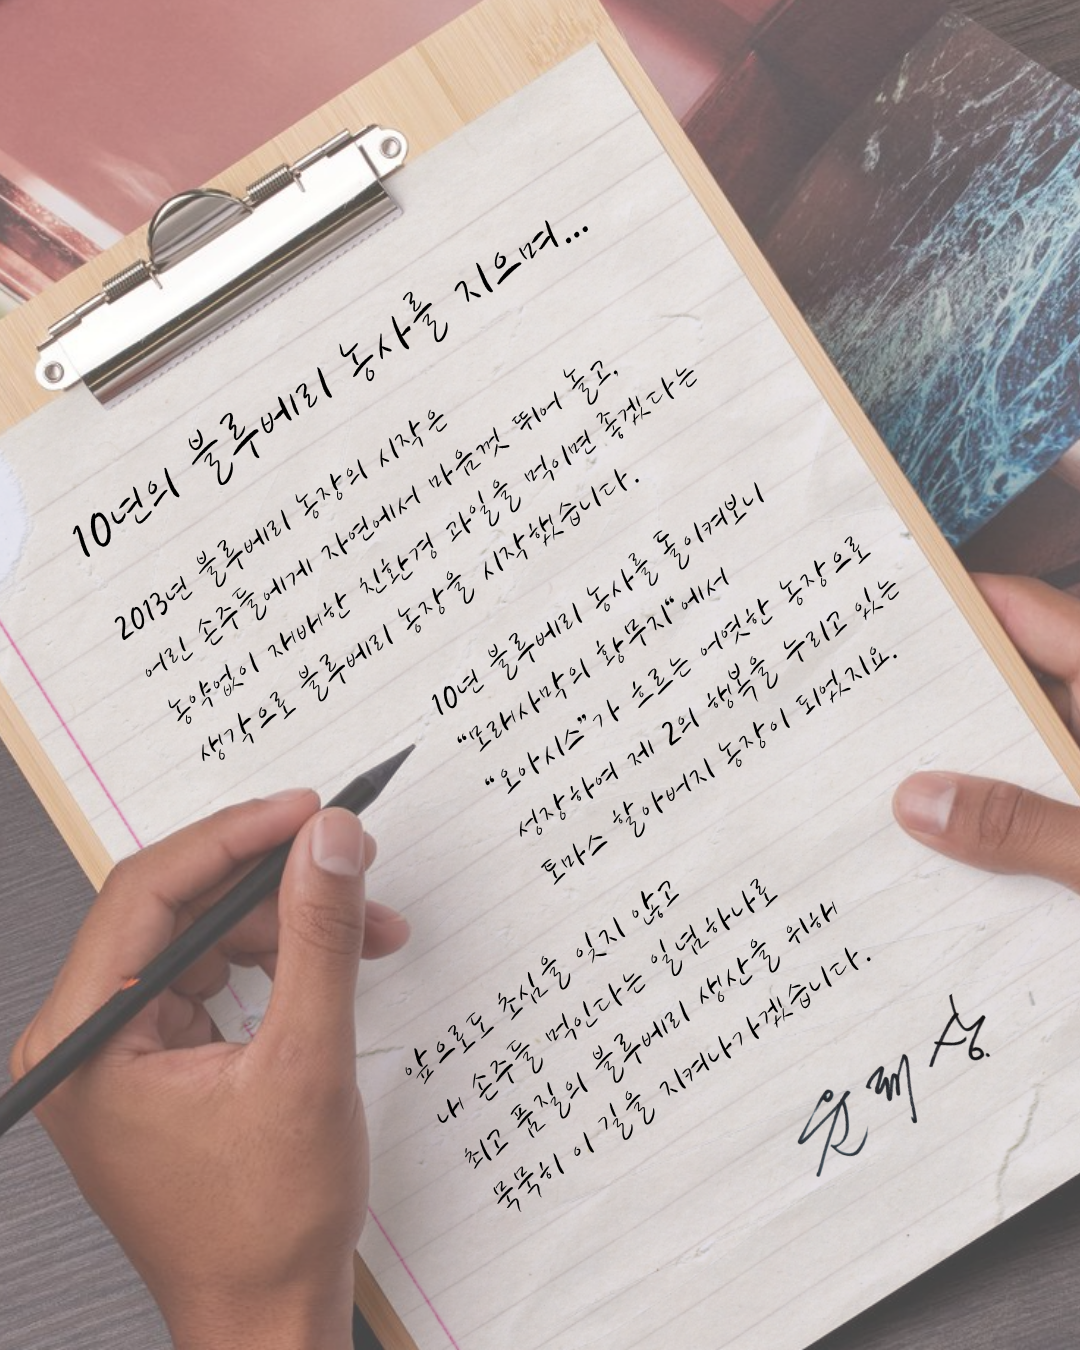 10년의 블루베리 농사를 지으며...
2013년 블루베리 농장의 시작은
어린 손주들에게 자연에서 마음껏 뛰어 놀고,
농약없이 재배한 친환경 과일을 먹이면 좋겠다는
생각으로 블루베리 농장을 시작했습니다.
10년 블루베리 농사를 돌이켜보니
“모래사막의 황무지“에서
“오아시스”가 흐르는 어엿한 농장으로
성장하여 제 2의 행복을 누리고 있는
토마스 할아버지 농장이 되었지요.
앞으로도 초심을 잊지 않고
내 손주들 먹인다는 일념하나로
최고 품질의 블루베리 생산을 위해
묵묵히 이 길을 지켜나가겠습니다.